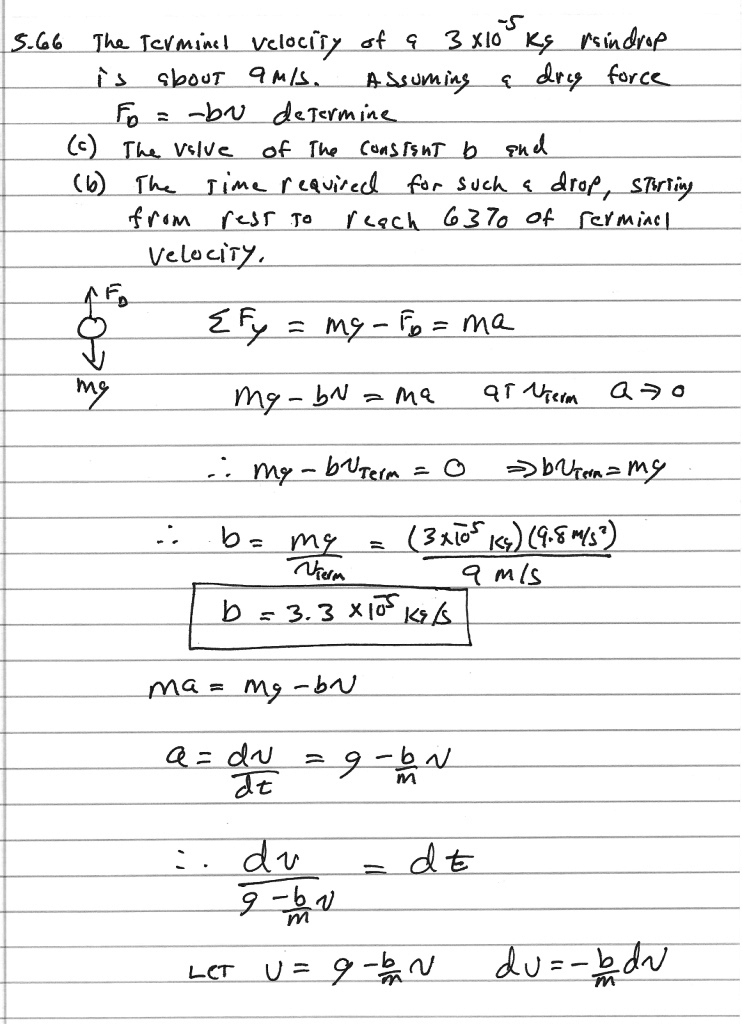 5.66 The Terminal velocity of a 3 x10⁻⁵ Kg raindrop
is about 9 m/s. Assuming a drag force
F_D = -bv determine
(a) The value of the constant b and
(b) The Time required for such a drop, starting
from rest to reach 63% of terminal
velocity.
F_D
ΣF_y = mg - F_D = ma
mg
mg - bv = ma at v_Term a ⇒ 0
∴ mg - bv_Term = 0 ⇒ bv_Term = mg
∴ b = mg/v_Term = (3x10⁻⁵ Kg)(9.8 m/s²)/9 m/s
b = 3.3 x10⁻⁵ Kg/s
ma = mg - bv
a = dv/dt = g - b/m v
∴ dv/(g - b/m v) = dt
Let u = g - b/m v du = - b/m dv